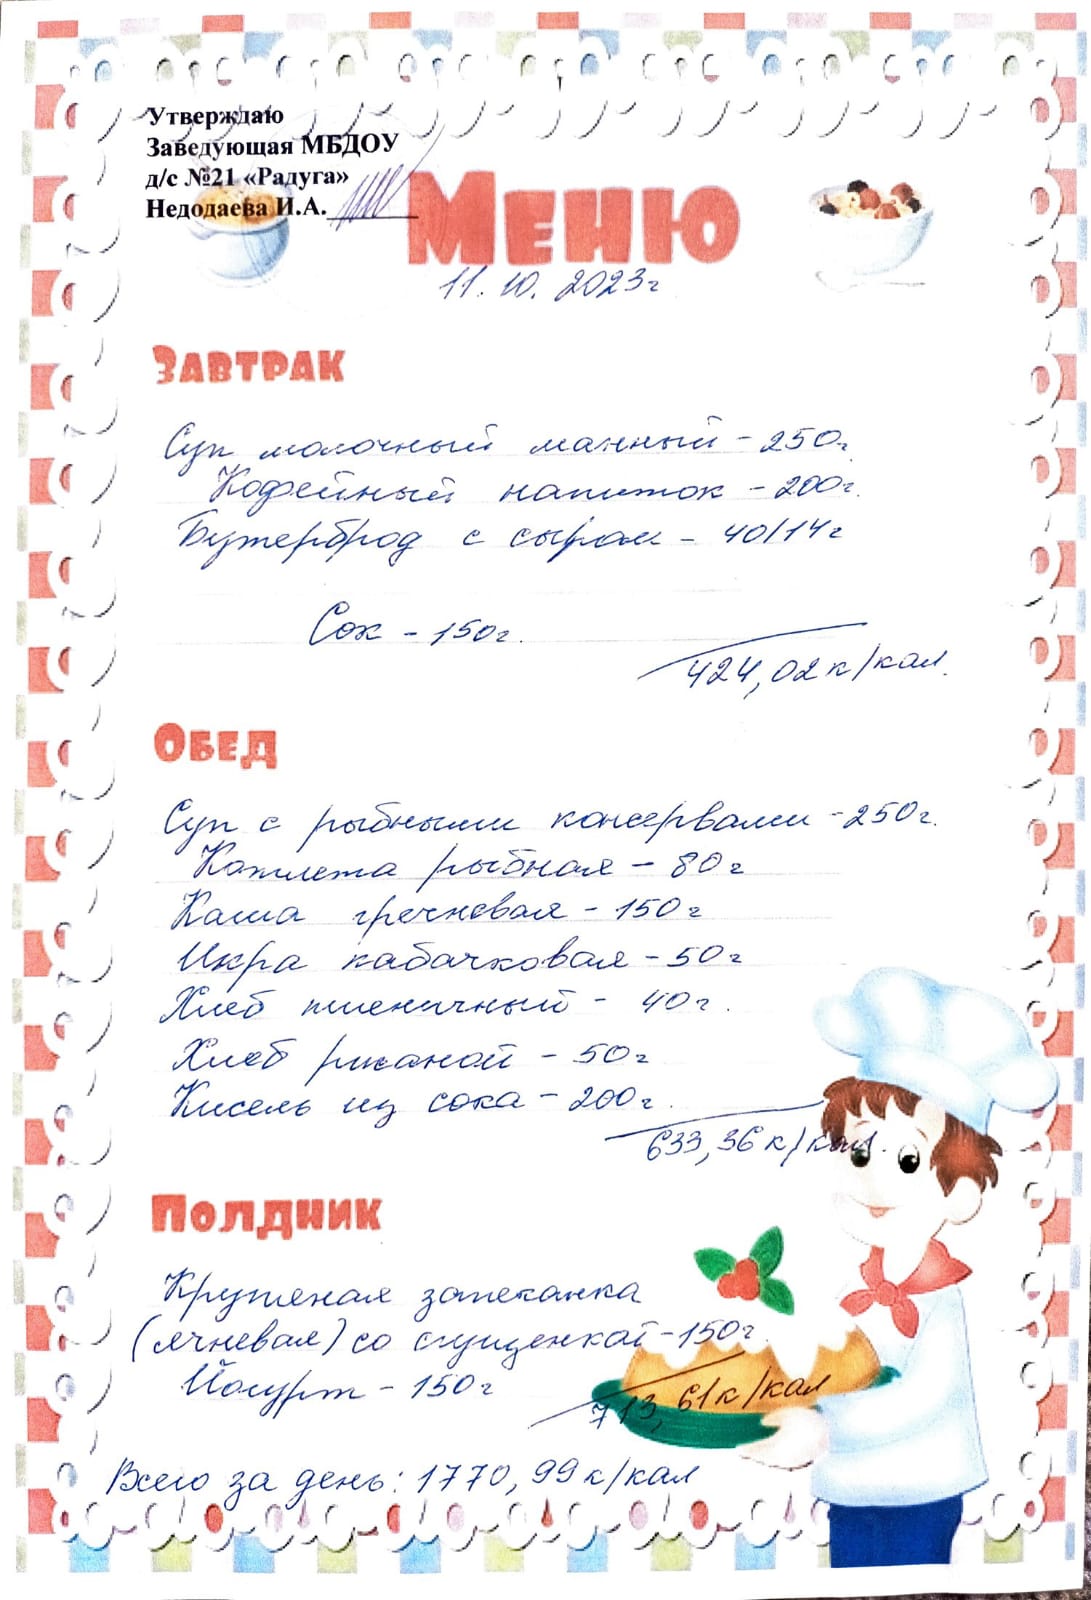 Утверждаю
Заведующая МБДОУ
д/с №21 «Радуга»
Недодаева И.А.
Меню
11.10.2023г
Завтрак
Суп молочный манный - 250г.
Кофейный напиток - 200г.
Бутерброд с сыром - 40/14г
Сок - 150г.
424,02 к/кал.
Обед
Суп с рыбными консервами - 250г.
Котлета рыбная - 80г
Каша гречневая - 150г
Икра кабачковая - 50г
Хлеб пшеничный - 40г.
Хлеб ржаной - 50г
Кисель из сока - 200г.
633,36 к/кал.
Полдник
Крупяная запеканка
(ячневая) со сгущенкой - 150г
Йогурт - 150г
713,61 к/кал
Всего за день: 1770,99 к/кал